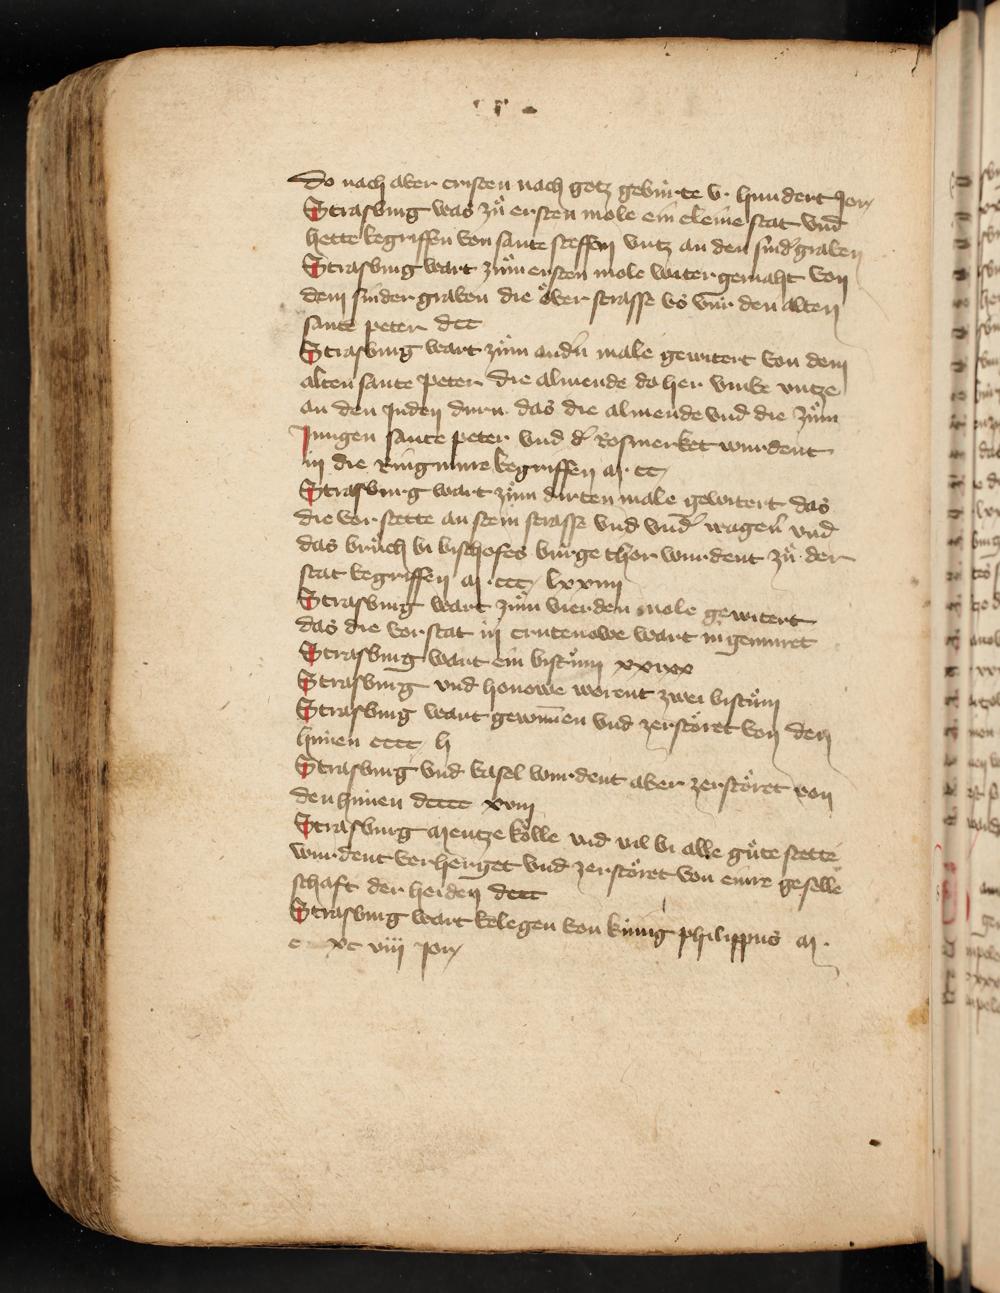 do nach aber cristen nach gotz gebúrte v. hundert Jor
Strasburg was zů ersten mole ein cleine stat vnd
hette begriffen von sante steffen vntz an den sind'graben
Strasburg wart zům ersten mole witer gemaht von
dem sinder graben die ober strasse vs vntz den alten
sante peter dcc
Strasburg wart zům andn male gewitert von dem
alten sante peter die almende do her vmbe vntze
an den Juden durn das die almende vnd die zům
Jungen sante peter vnd d' Rosmerket wurdent
in die Ringmure begriffen m cc
Strasburg wart zům dirten male gewitert das
die vorstette an stein strasse vnd vnd' wagen' vnd
das brůch bi bischofes burge thor wurdent zů der
stat begriffen m ccc lxxiiii
Strasburg wart zům vierden mole gewitert
das die vorstat in crutenowe wart in gemuret
Strasburg wart ein bistům
Strasburg vnd honowe worent zwei bistům
Strasburg wart gewinnen vnd zerstöret von den
húnen cccc l
Strasburg vnd basel wurdent aber zerstöret von
den húnen dcccc xviii
Strasburg mentze kölle vnd vil bi alle gůte stette
wurdent verherget vnd zerstöret von einre geselle
schaft der heiden dccc
Strasburg wart belegen von kúnig philippus m.
c xc viii Jor